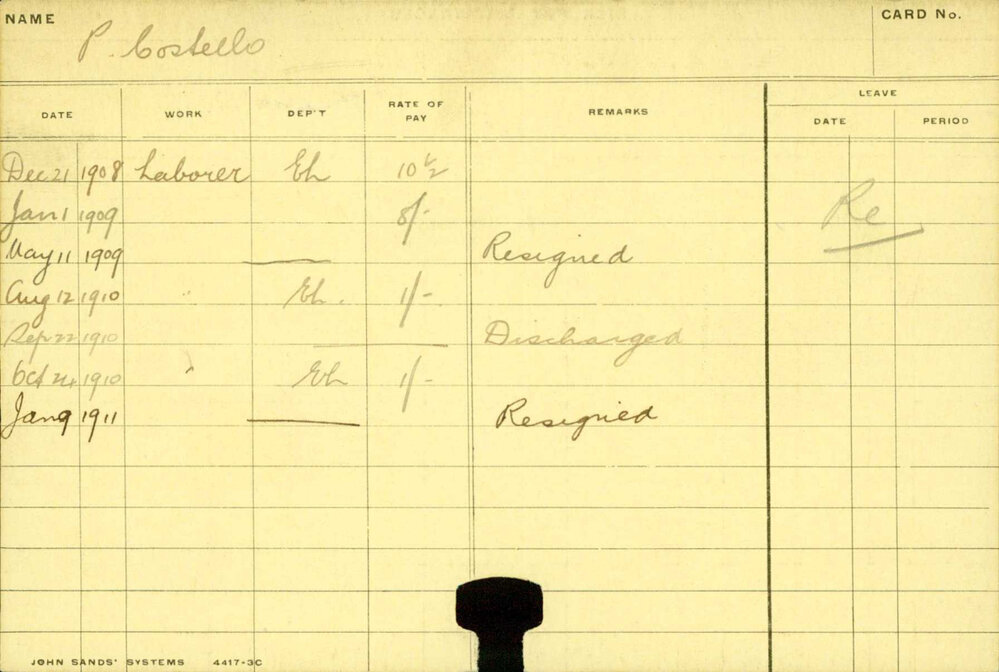 NAME P. Costello CARD No.
LEAVE
DATE WORK DEP'T RATE OF PAY REMARKS DATE PERIOD
Dec 21 1908 Laborer Eh 10½
Jan 1 1909 8/- Re
May 11 1909 Resigned
Aug 12 1910 " Eh. 1/-
Sep 22 1910 Discharged
Oct 24 1910 " Eh 1/-
Jan 9 1911 Resigned
JOHN SANDS' SYSTEMS 4417-3C